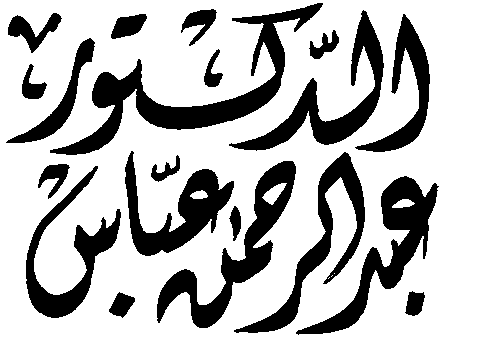 الدّكتور
عبد الرحمٰن عبّاس